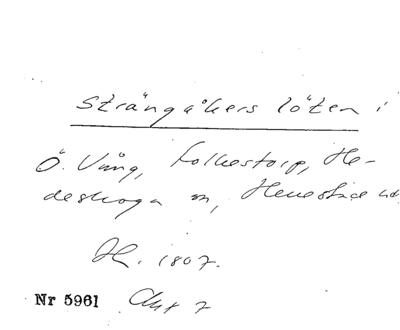 Strängåkers löten i
Ö. Vång, Folkestorp, He-
deskoga m,
H. 1807.
Nr 5961 Akt 7